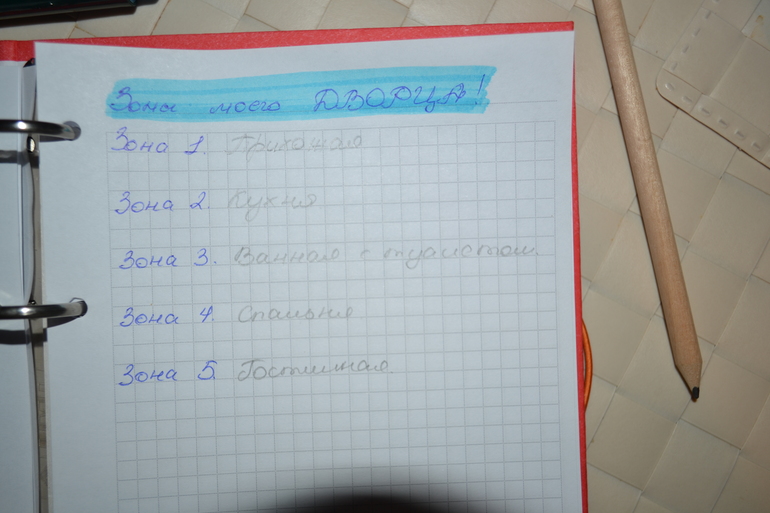 Зона моего ДВОРЦА!
Зона 1. Прихожая
Зона 2. Кухня
Зона 3. Ванная с туалетом.
Зона 4. Спальня
Зона 5. Гостинная.